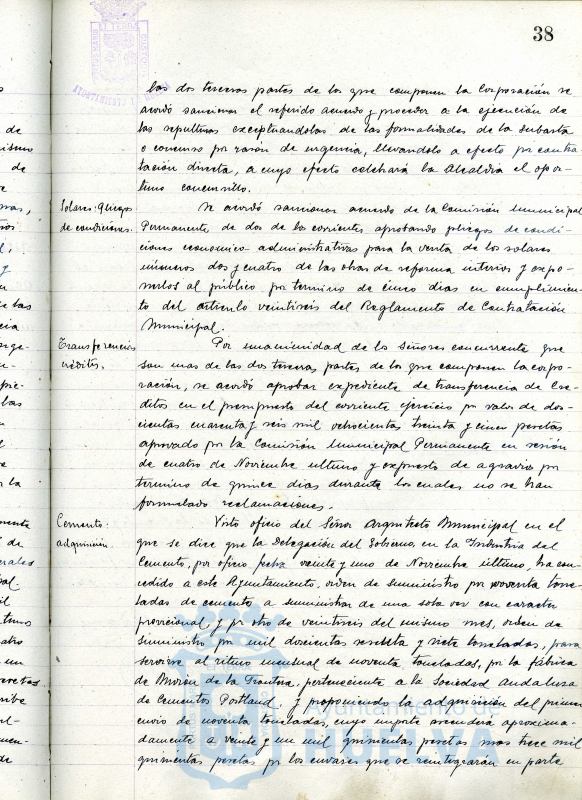 38
las dos terceras partes de los que componen la Corporación se
acordó sancionar el referido acuerdo y proceder a la ejecución de
las sepulturas exceptuandolas de las formalidades de la subasta
o concurso por razón de urgencia, llevandolo a efecto por contra
tación directa, a cuyo efecto celebrará la Alcaldia el opor-
tuno concursillo.
Solares: Pliegos
de condiciones.
Se acordó sancionar acuerdo de la Comisión Municipal
Permanente de dos de los corrientes aprobando pliegos de condi-
ciones economico-administrativas para la venta de los solares
números dos y cuatro de las obras de reforma interior y expo-
nerlos al público por termino de cinco dias en cumplimien-
to del articulo veintiseis del Reglamento de Contratación
Municipal.
Transferencias
créditos.
Por unanimidad de los Señores concurrente que
son mas de las dos terceras partes de los que componen la corpo-
ración, se acordó aprobar expediente de transferencia de Cre-
ditos en el presupuesto del corriente ejercicio por valor de dos-
cientas cuarenta y seis mil ochocientas treinta y cinco pesetas
aprovado por la Comisión Municipal Permanente en sesión
de cuatro de Noviembre ultimo y expuesto de agravios por
termino de quince dias durante los cuales no se han
formulado reclamaciones.
Cemento:
adquisición.
Visto oficio del Señor Arquitecto Municipal en el
que se dice que la Delegación del Gobierno en la Industria del
Cemento, por oficio fecha veinte y uno de Noviembre último, ha con-
cedido a este Ayuntamiento, orden de suministro por noventa tone-
ladas de cemento a suministrar de una sola vez con caracter
provisional, y por otro de veintiseis del mismo mes, orden de
suministro por mil doscientas sesenta y siete toneladas, para
servirse al ritmo mensual de noventa toneladas, por la fábrica
de Morón de la Frontera, perteneciente a la Sociedad Andaluza
de Cementos Portland, y proponiendo la adquisición del primer
envio de noventa toneladas, cuyo importe ascenderá aproxima-
damente a veinte y un mil quinientas pesetas mas trece mil
quinientas pesetas por los envases que se reintegrarán en parte
Ayuntamiento de
HUELVA